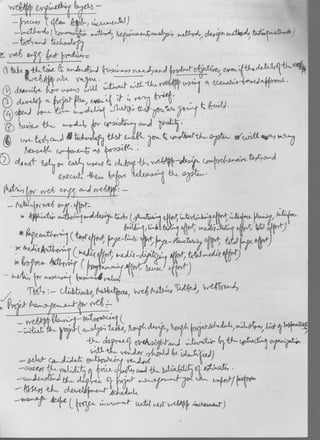 webApp engineering layers —
— process (
— methods (communication methods, requirement analysis methods, design methods, testing methods)
— tools and technology
web engg best practices
① take the time to understand business needs and product objectives, even if the details of the webApp are vague.
② describe how users will interact with the webApp using a scenario-based approach.
③ develop a project plan, even if it is very brief.
④ spend some time modeling what is that you're going to build.
⑤ review the models for consistency and quality.
⑥ use tools and technology that enable you to construct the system with as many
reusable components as possible.
⑦ don't rely on early users to debug the webApp - design comprehensive tests and
execute them before releasing the system.
Metrics for web engg. and webApp: —
— Metrics for web engg. effort.
* Application authoring and design tasks (structuring effort, interlinking effort, interface planning, interface
building, link testing effort, media testing effort, total effort)
* Page authoring (text effort, page-links effort, page-structuring effort, total page effort)
* Media Authoring (media effort, media-digitizing effort, total media effort)
* Program Authoring (programming effort, reuse effort)
— metrics for assessing business value
Tools:— Clicktracks, Marketforce, web metrics Testbed, webTrends,
Project management for web:—
— webApp Planning - outsourcing (
— initiate the project (analysis tasks, rough design, rough project schedule, milestones, list of responsibilities
the degree of oversight and interaction by the contracting organization
with the vendor should be identified)
— select candidate outsourcing vendors
— assess the validity of price quotes and the reliability of estimates.
— understand the degree of project management you can expect/perform
— Assess the development schedule
— manage scope (frozen increment until next webApp increment)